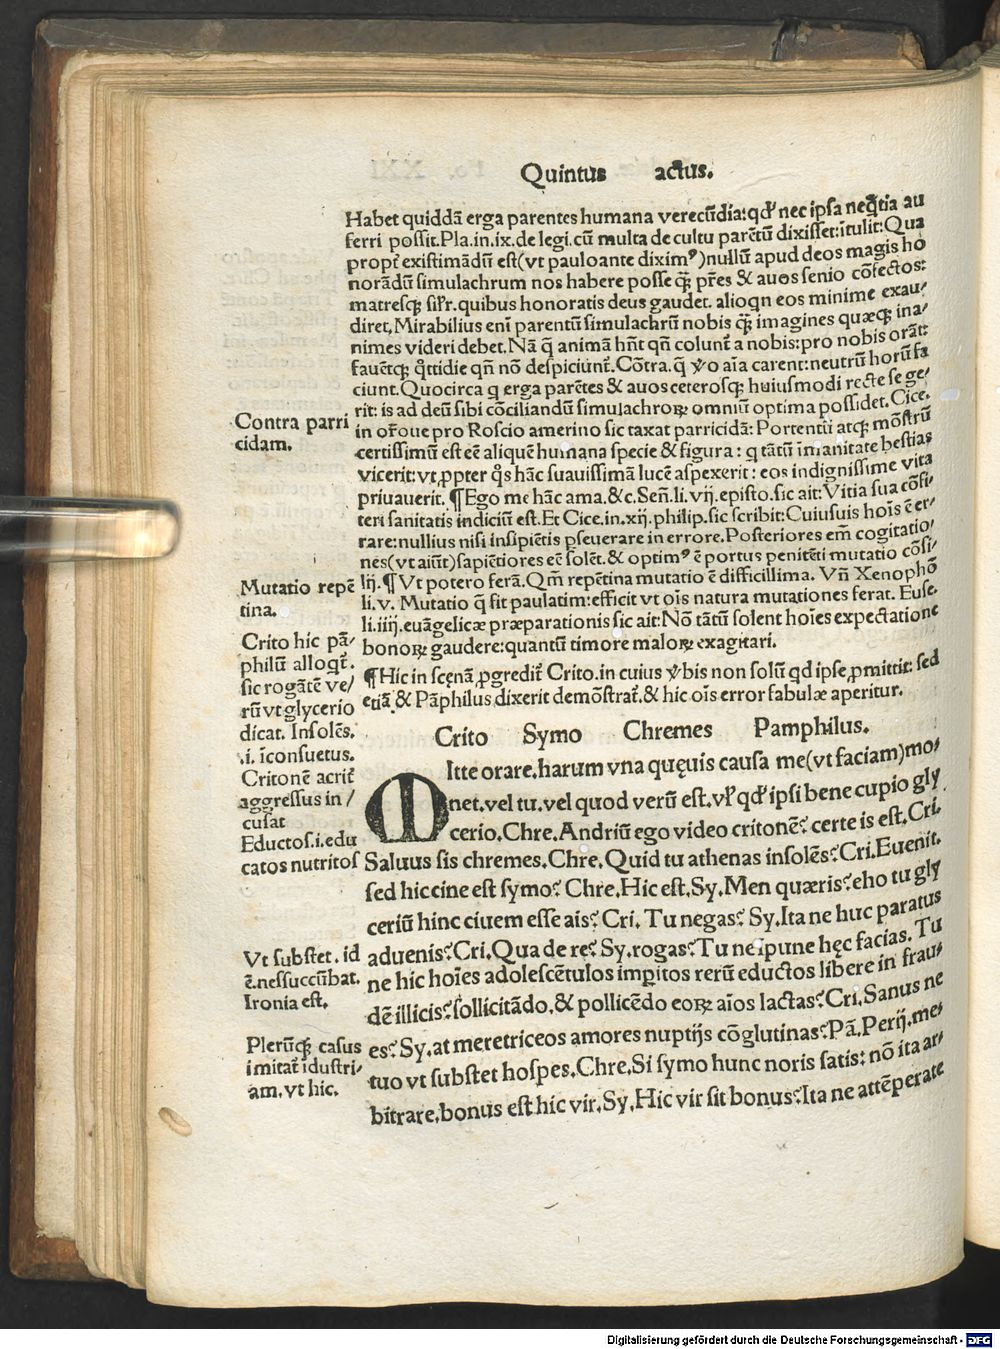 Quintus actus.
Habet quiddā erga parentes humana verecūdia: qđ nec ipsa neq̄tia au
ferri possit. Pla. in. ix. de legi. cū multa de cultu parētū dixisset: ītulit: Qua
propt̄ existimādū est (vt pauloante diximꝰ) nullū apud deos magis ho
norādū simulachrum nos habere posse q̄ꝫ p̄res & auos senio cōfectos:
matresqꝫ sił'r. quibus honoratis deus gaudet. alioqn eos minime exau/
diret, Mirabilius eni parentū simulachrū nobis q̄ꝫ imagines quæqꝫ ina/
nimes videri debet. Nā q̄ animā hn̄t qn̄ colunt̄ a nobis: pro nobis orāt:
fauētqꝫ q̄ttidie qn̄ nō despiciunt̄. Cōtra. q̄ v̄o aīa carent: neutrū horū fa
ciunt. Quocirca q erga parētes & auos ceterosqꝫ huiusmodi recte se ge/
rit: is ad deū sibi cōciliandū simulachroꝝ omniū optima possidet. Cice.
in or̄oue pro Roscio amerino sic taxat parricidā: Portentū atqꝫ mōstrū
certissimū est eē aliquē humana specie & figura: q tātū īmanitate bestias
vicerit: vt ꝓpter q̄s hāc suauissimā lucē aspexerit: eos indignissime vita
priuauerit. ¶ Ego me hāc ama. &c. Señ. li. vij. episto. sic ait: Vitia sua cōfi/
teri sanitatis indiciū est. Et Cice. in. xij. philip. sic scribit: Cuiusuis hoīs ē er/
rare: nullius nisi insipiētis pseuerare in errore. Posteriores em̄ cogitatio/
nes (vt aiūt) sapiētiores eē solēt. & optimꝰ ē portus penitēti mutatio cōsi/
lij. ¶ Vt potero ferā. Qm̄ repētina mutatio ē difficillima. Vn̄ Xenophō
li. v. Mutatio q̄ fit paulatim: efficit vt oīs natura mutationes ferat. Euse.
li. iiij. euāgelicæ præparationis sic ait: Nō tātū solent hoīes expectatione
bonoꝝ gaudere: quantū timore maloꝝ exagitari.
¶ Hic in scęnā ꝓgredit̄ Crito. in cuius v̄bis non solū qd ipse ꝓmittit: sed
etiā & Pāphilus dixerit demōstrat̄. & hic oīs error fabulæ aperitur.
Crito Symo Chremes Pamphilus.
MItte orare. harum vna quęuis causa me (vt faciam) mo/
net. vel tu. vel quod verū est. vł qđ ipsi bene cupio gly
cerio. Chre. Andriū ego video critonē? certe is est. Cri.
Saluus sis chremes. Chre. Quid tu athenas insolēs? Cri. Euenit.
sed hiccine est symo? Chre. Hic est. Sy. Men quæris? eho tu gly
ceriū hinc ciuem esse ais? Cri. Tu negas? Sy. Ita ne huc paratus
aduenis? Cri. Qua de re? Sy. rogas? Tu ne ipune hęc facias. Tu
ne hic hoīes adolescētulos impitos rerū eductos libere in frau/
dē illicis? sollicitādo. & pollicēdo eoꝝ aīos lactas? Cri. Sanus ne
es? Sy. at meretriceos amores nuptijs cōglutinas? Pā. Perij. me/
tuo vt substet hospes. Chre. Si symo hunc noris satis: nō ita ar/
bitrare. bonus est hic vir. Sy. Hic vir sit bonus? Ita ne attēperate
Contra parri
cidam.
Mutatio repē
tina.
Crito hic pā/
philū alloqt̄.
sic rogātē ve/
rū vt glycerio
dicat. Insolēs.
.i. īconsuetus.
Critonē acrit̄
aggressus in/
cusat
Eductos. i. edu
catos nutritos
Vt substet. id
ē. ne succūbat.
Ironia est.
Plerūqꝫ casus
imitat̄ idustri/
am. vt hic.
Digitalisierung gefördert durch die Deutsche Forschungsgemeinschaft - DFG